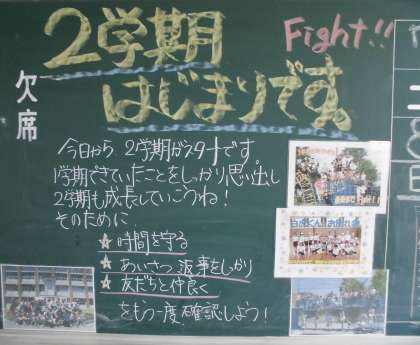 2学期
はじまりです。
Fight!!
欠席
今日から、2学期がスタートです。
1学期できていたことをしっかり思い出し
2学期も成長していこうね!
そのために
☆時間を守る
☆あいさつ 返事をしっかり
☆友だちと仲良く
をもう一度確認しよう!